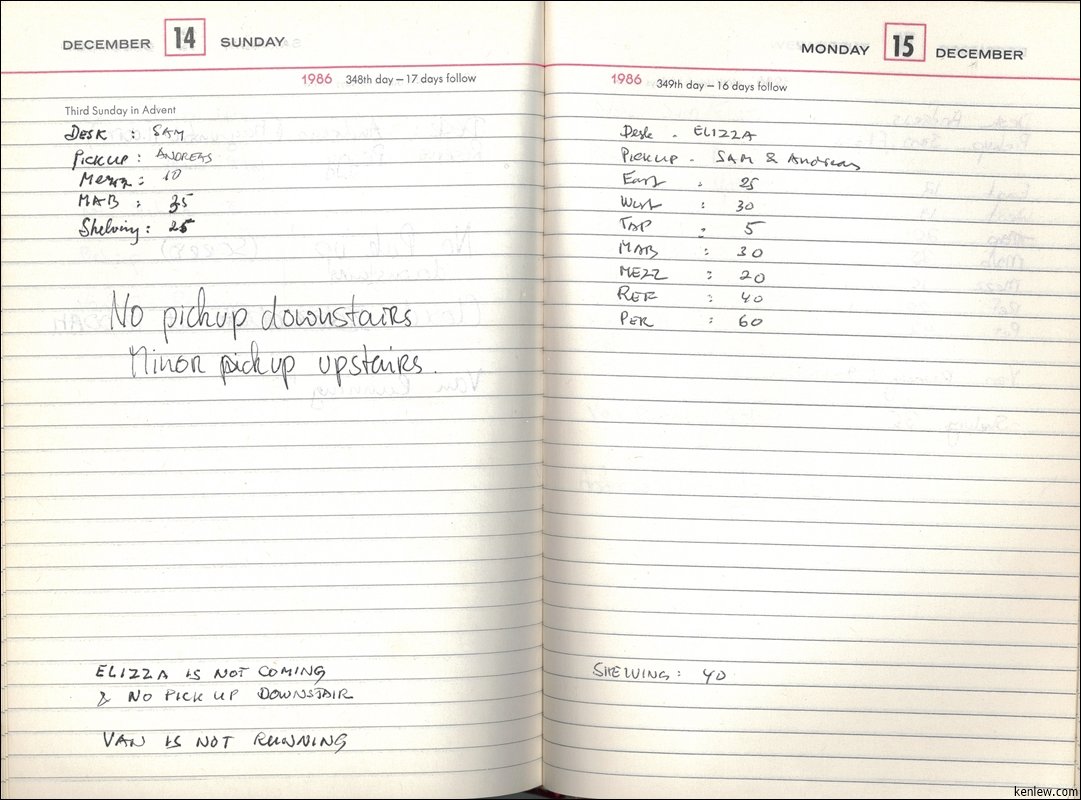 DECEMBER 14 SUNDAY
1986 348th day — 17 days follow
Third Sunday in Advent
DESK : SAM
PICKUP : ANDREAS
Mezz : 10
MAB : 35
Shelving : 25
No pickup downstairs
Minor pickup upstairs.
ELIZZA IS NOT COMING
& NO PICK UP DOWNSTAIR
VAN IS NOT RUNNING
MONDAY 15 DECEMBER
1986 349th day — 16 days follow
Desk - ELIZZA
PICKUP - SAM & Andreas
East : 25
West : 30
TAP : 5
MAB : 30
MEZZ : 20
REF : 40
PER : 60
SHELVING : 40
kenlew.com